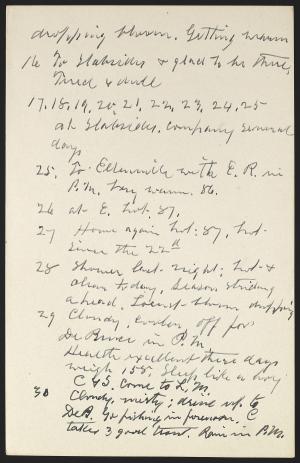 dropping bloom. Getting warm
16 To Slabsides & glad to be there,
Tired & dull
17, 18, 19, 20, 21, 22, 23, 24, 25
at Slabsides, company several
days
25, To Ellenville with E. R. in
P.M. Very warm. 86.
26 at E. hot. 87,
27 Home again hot: 87, hot
since the 22nd
28 Shower last night; hot &
clear to-day, season striding
ahead. Locust bloom dropping
29 Cloudy, cooler off for
De Bruce in P.M.
Health excellent these days
weigh 155, Sleep like a boy
C G S. come to L. M.
30 Cloudy, misty; drive up to
DeB. Go fishing in forenoon, C
takes 3 good trout. Rain in P.M.